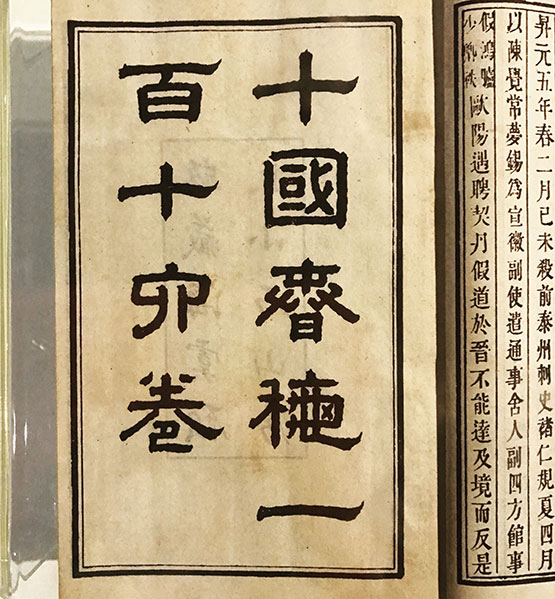 昇元五年春二月己未殺前泰州刺史諸仁規夏四月
以陳覺常夢錫爲宣徽副使遣通事舍人副四方館事
假鴻臚
少卿
歐陽遇聘契丹假道於晉不能達及境而反是
十國春穐一
百十四卷